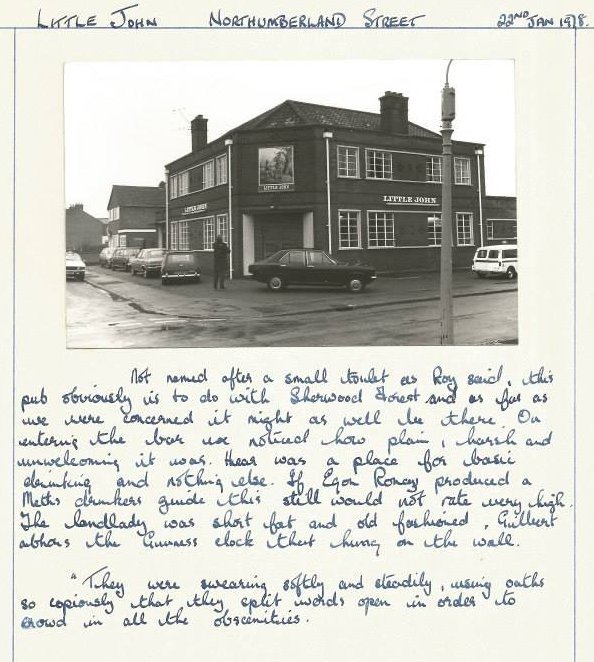 LITTLE JOHN NORTHUMBERLAND STREET 22ND JAN 1978.
LITTLE JOHN
LITTLE JOHN
LITTLE JOHN
Not named after a small toilet as Roy said, this
pub obviously is to do with Sherwood Forest and as far as
we were concerned it might as well be there. On
entering the bar we noticed how plain, harsh and
unwelcoming it was. Hear was a place for basic
drinking and nothing else. If Egon Ronay produced a
Meths drinkers guide this still would not rate very high.
The landlady was short fat and old fashioned, Guilbert
abhors the Guinness clock that hung on the wall.
"They were swearing softly and steadily, using oaths
so copiously that they split words open in order to
crowd in all the obscenities.